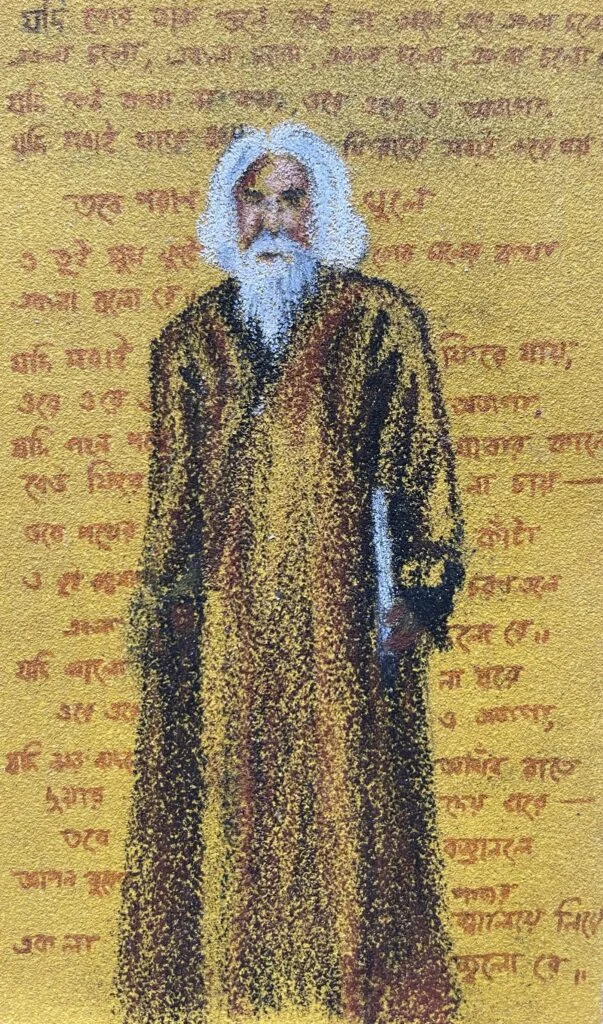 যদি তোর ডাক শুনে কেউ না আসে তবে একলা চলো
একলা চলো, একলা চলো, একলা চলো, একলা চলো
যদি কেউ কথা না কয়, ওরে ওরে ও অভাগা,
যদি সবাই থাকে ফিরায়ে সবাই করে ভয়
তবে পরাণ খুলে
ও তুই মুখ ফুটে তোর মনের কথা
একলা বলো রে॥
যদি সবাই ফিরে যায়,
ওরে ওরে ও অভাগা,
যদি গহন যাবার কালে
কেউ ফিরে না চায় —
তবে পথের কাঁটা
ও তুই চরণতলে
একলা দলো রে॥
যদি আলো না ধরে
ওরে ওরে ও অভাগা,
যদি ঝড় আঁধার রাতে
দুয়ার দেয় ঘরে —
তবে বজ্রানলে
আপন বুকের পাঁজর
জ্বালিয়ে নিয়ে
একলা জ্বলো রে॥